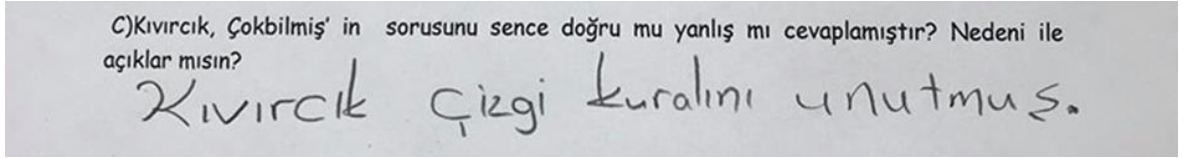 C)Kıvırcık, Çokbilmiş' in sorusunu sence doğru mu yanlış mı cevaplamıştır? Nedeni ile
açıklar mısın?
Kıvırcık Çizgi kuralını unutmuş.